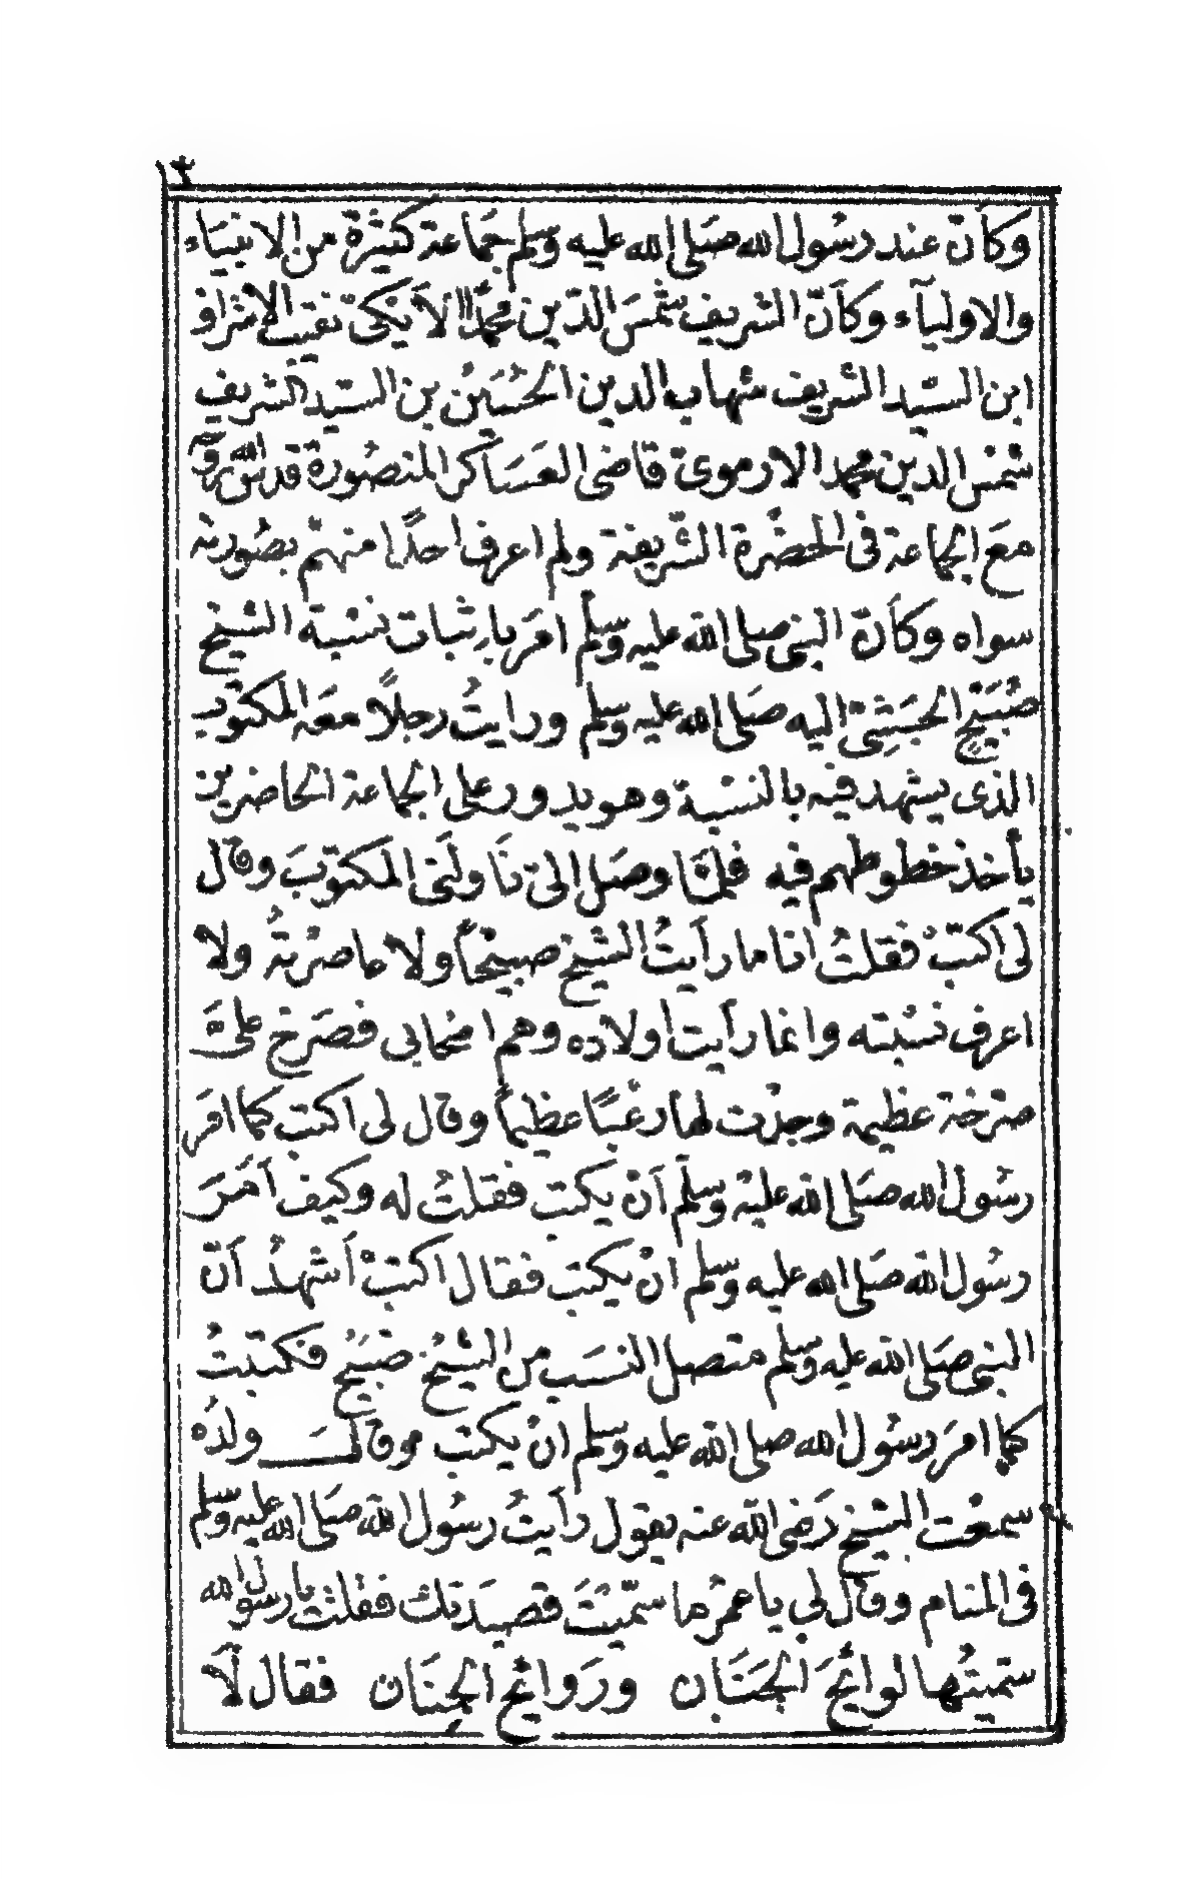 ١٣
وكانَ عند رسُول الله صَلى الله عليه وسلم جَماعة كثيرة من الانبياء
والاوليآء وكانَ الشريف شمسَ الدّين محمدًا الايكىّ نقيب الاشراف
ابن السّيد الشريف شهاب الدين الحسَين بن السّيد الشريف
شمس الدين محمد الارموى قاضى العَسَاكر المنصُورة قدس الله روحه
معَ الجماعة فى الحضْرة الشّريفة ولم اعرف احدًا منهمْ بصُورته
سواه وكانَ النبى صلى الله عليه وسلم امَر باِثبات نسْبة الشيخ
صُبَيْحٍ الحَبَشِىّ اليه صَلى الله عليه وسلم ورايتُ رجلاً معَه المكتوب
الذى يشهد فيه بالنسْبة وهو يدور على الجماعة الحاضرين
يأخذ خطوطهم فيه فلمَّا وصَل الىّ نَاولَنى المكتوبَ وقال
لى اكتبْ فقلتُ انا ما رأيتُ الشيخ صبيحًا ولا عاصرْتهُ ولا
اعرف نسْبته وانما رأيت أولاده وهم اصحابى فصَرخ علىَّ
صَرْخة عظيمة وجدْت لها رعبًا عظيماً وقال لى اكتب كما امَر
رسُول الله صَلى الله عليْه وسلم اَنْ يكتب فقلتُ له وكيف اَمَرَ
رسُول الله صَلى الله عليه وسلم انْ يكتب فقال اكتبْ اَشهدُ اَنّ
النبى صَلى الله عليه وسلم متصل النسَب من الشيْخ صُبَيْح فكتبتُ
كما امَر رسُول الله صلى الله عليه وسلم انْ يكتب وقالَ ولدُه
سمعْت الشيخ رَضى الله عنه يقول رأيتُ رسُول الله صَلى الله عليه وسلم
فى المنام وقال لى يا عمرُ ما سمّيْتَ قصيدَتك فقلت يا رسول الله
سَميتُها لوائحَ الجَنَان ورَوائح الجِنَان فقال لَا